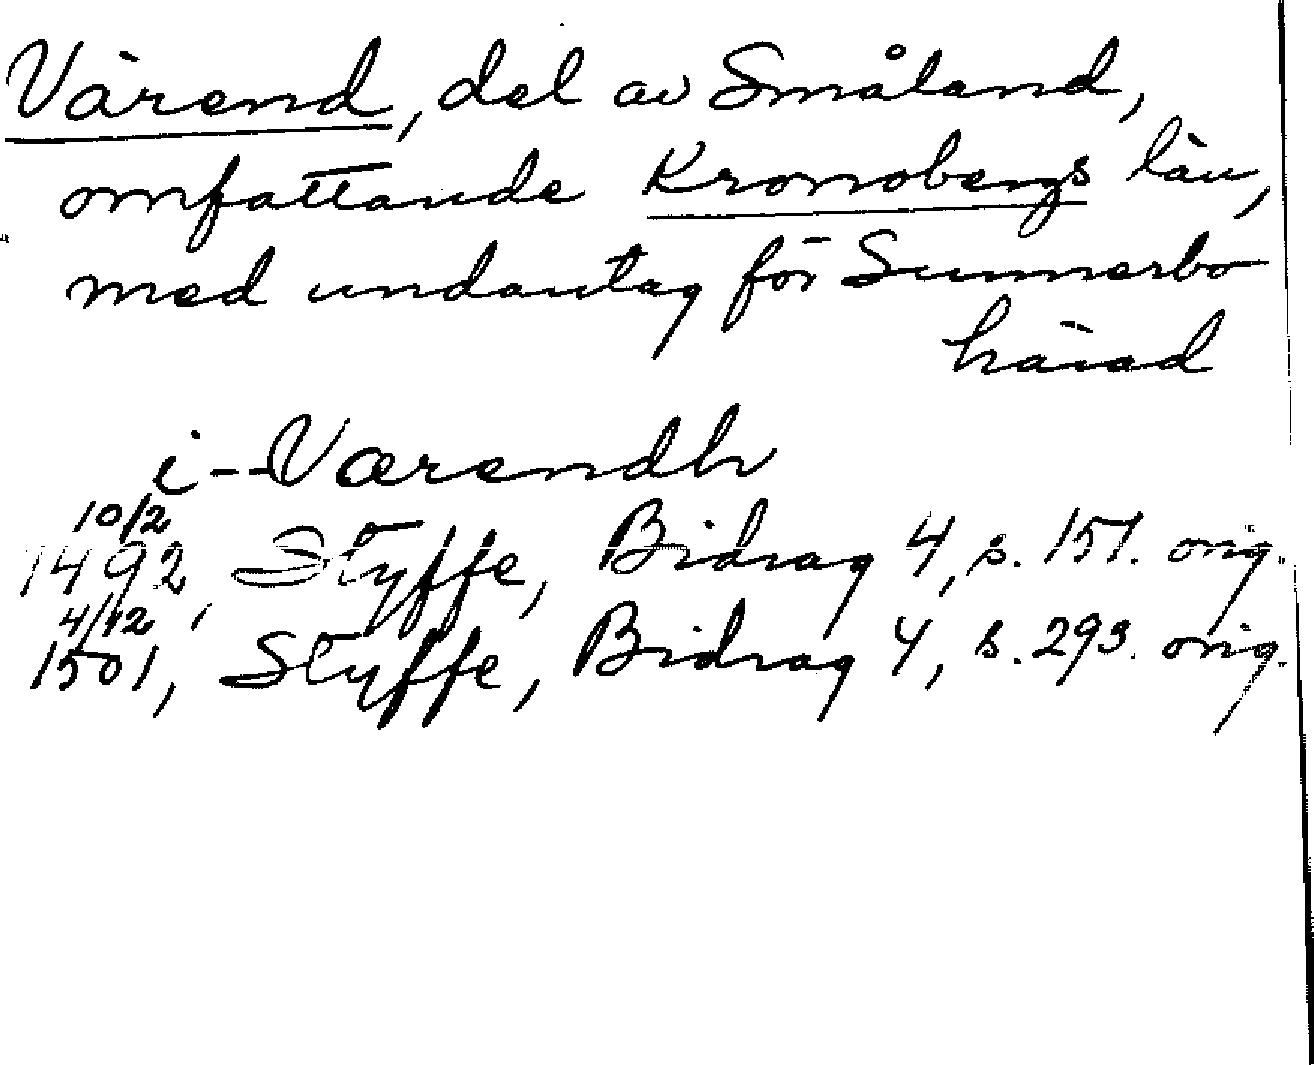 Värend, del av Småland,
omfattande Kronobergs län,
med undantag för Sunnerbo
härad
i--Værendh
10/2
1492, Styffe, Bidrag 4, s. 151. orig.
4/12
1501, Styffe, Bidrag 4, s. 293. orig.